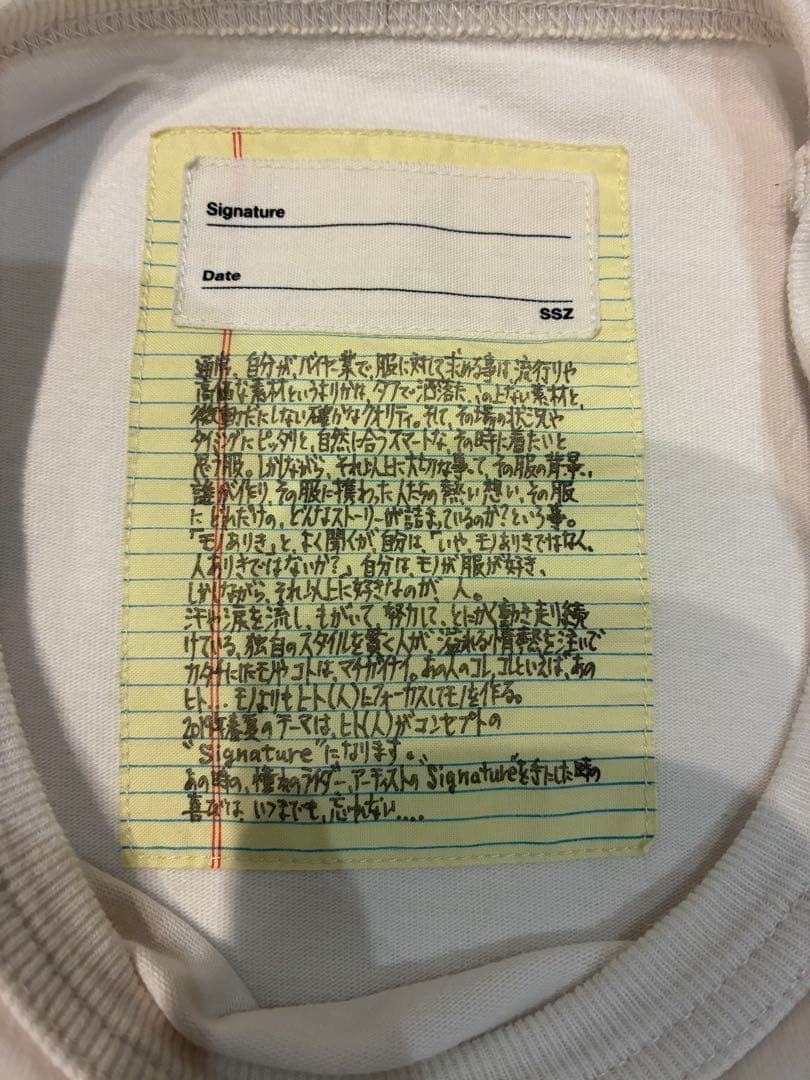 Signature
Date
SSZ
通常、自分が、バイヤー業で、服に対して求める事は、流行りや
高価な素材というよりかは、タフで洒落た、この上ない素材と、
微動だにしない確かなクオリティ。そして、その場の状況や
タイミングにピッタリと、自然に合うスマートな、その時に着たいと
思う服。しかしながら、それ以上に大切な事って、その服の背景、
誰が作り、その服に携わった人たちの熱い想い、その服
に どれだけの、どんなストーリーが詰まっているのか?という事。
「モノありき」と、よく聞くが、自分は、「いや、モノありきではなく、
人ありきではないか?」自分は、モノが服が好き、
しかしながら、それ以上に好きなのが、人。
汗や涙を流し、もがいて、努力して、とにかく動き走り続
けている、独自のスタイルを貫く人が、溢れる情熱を注いで
カタチにしたモノやコトは、マチガイナイ。あの人のコレ、コレといえば、あの
ヒト... モノよりもヒト(人)にフォーカスしてモノを作る。
2019年春夏のテーマは、ヒト(人)がコンセプトの
"Signature"になります。
あの時の、憧れのライダー、アーティストの"Signature"を手にした時の
喜びは、いつまでも、忘れない....